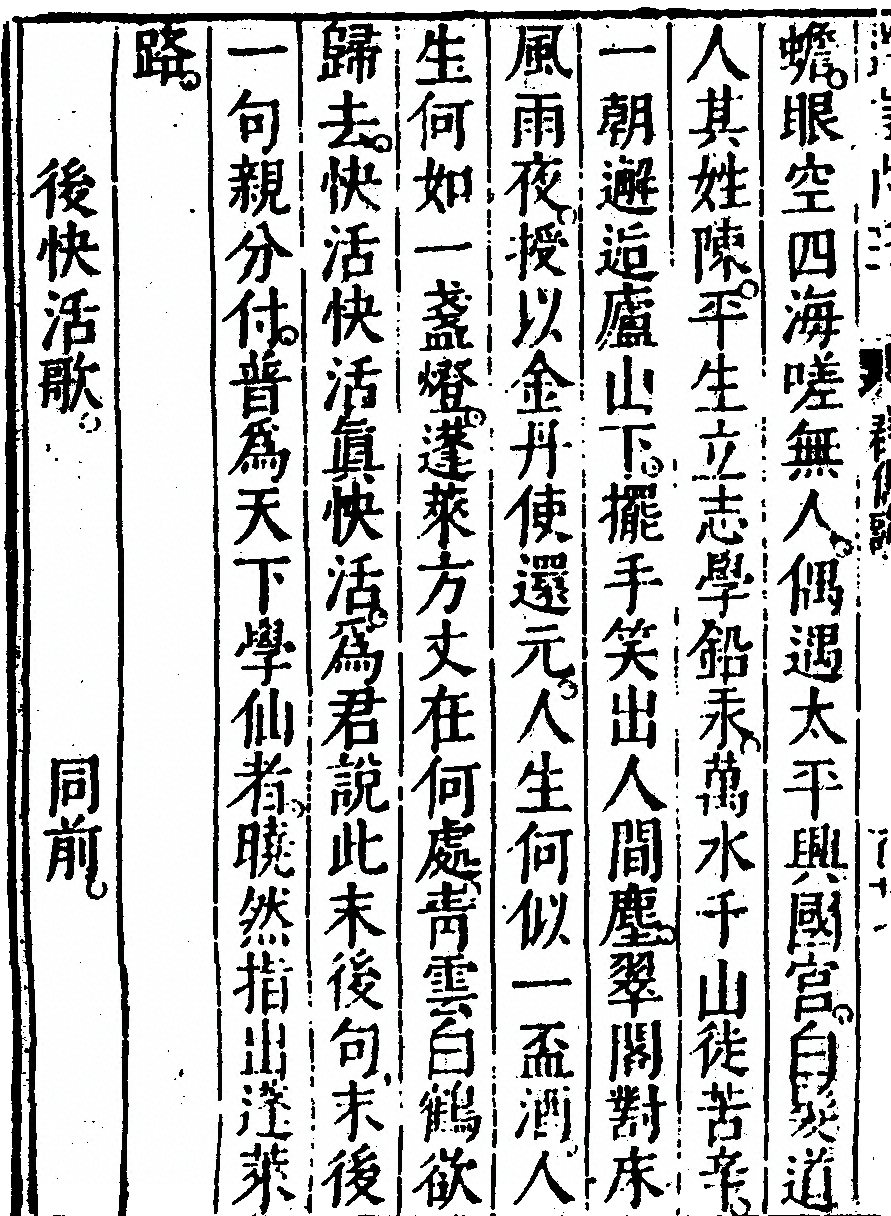 蟾眼空四海嗟無人偶遇太平興國宮白髮道
人其姓陳平生立志學鉛汞萬水千山徒苦辛
一朝邂逅廬山下擺手笑出人間塵翠閣對床
風雨夜授以金丹使還元人生何似一盃酒人
生何如一盞燈蓬萊方丈在何處青雲白鶴欲
歸去快活快活真快活為君說此末後句末後
一句親分付普為天下學仙者曉然指出蓬萊
路
後快活歌 同前